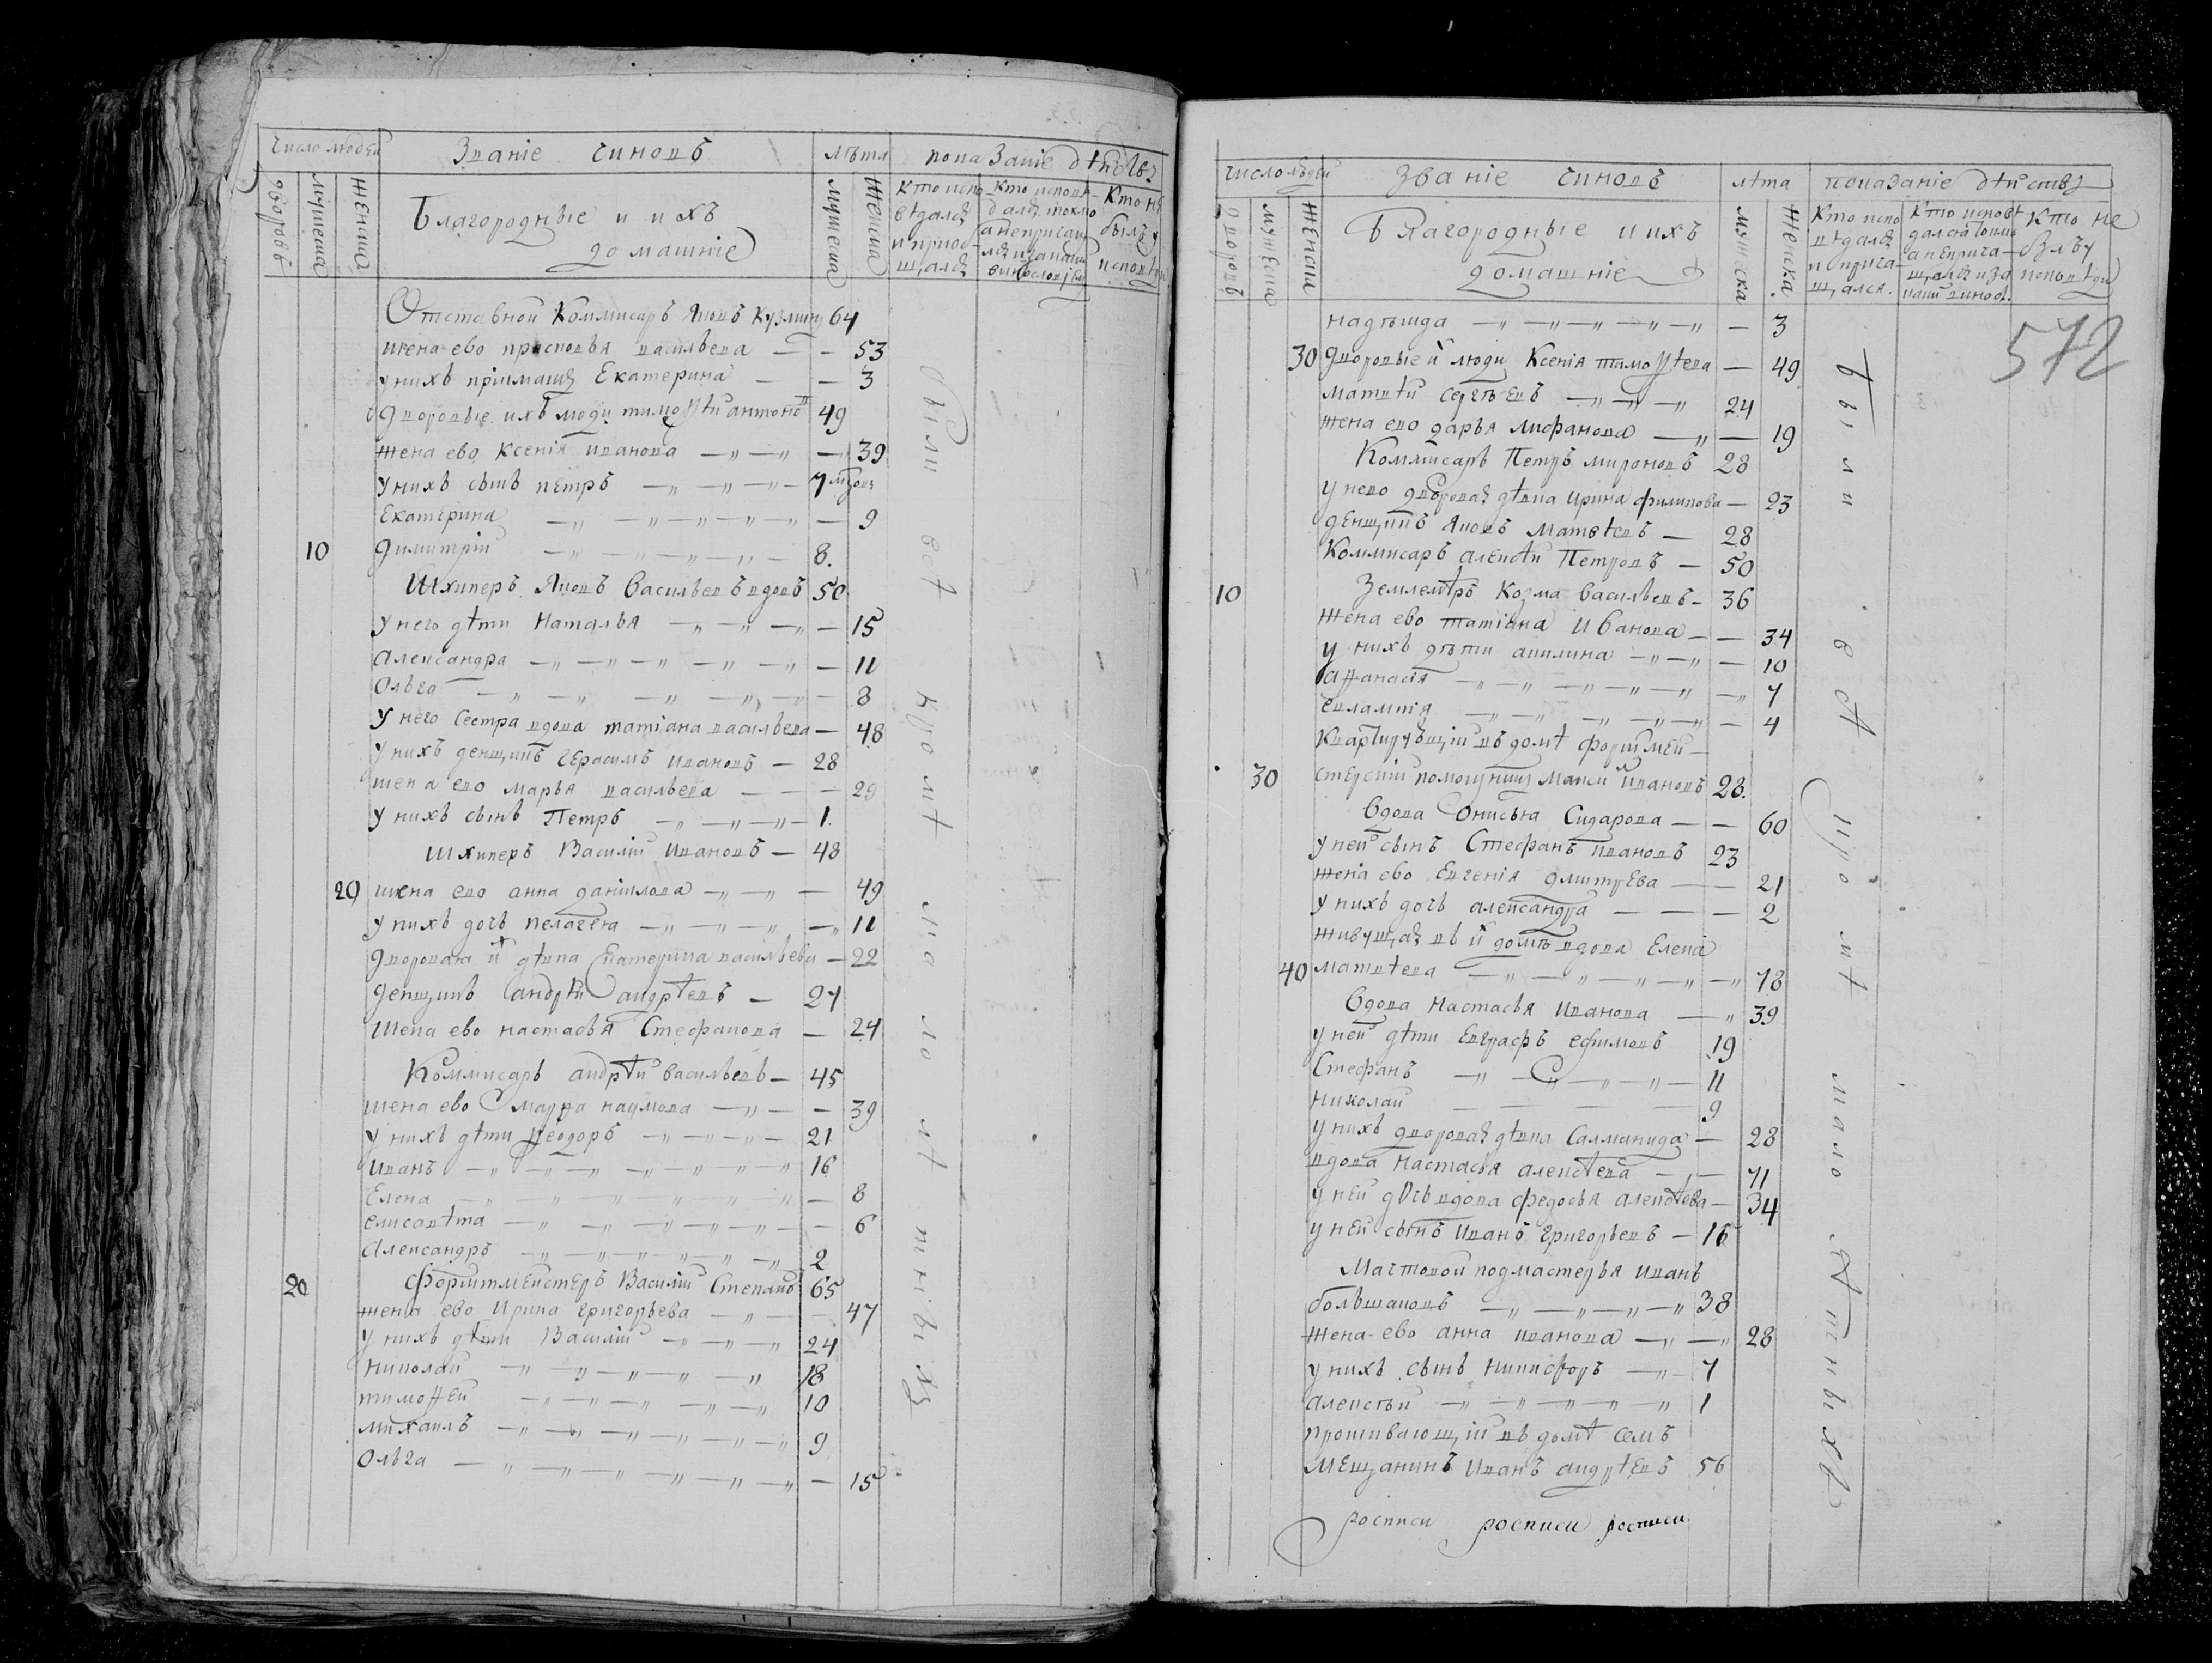 Число людей
Званіе чиновъ
лѣта
показаніе дѣйствъ
дворовъ
мужеска
женска
Благородные и ихъ
домашніе
мужеска
женска
Кто испо
вѣдался
и приоб
щался
Кто исповѣ
дался токмо
а не прича
Кто не
былъ у
исповѣди
Отставной Коммисаръ Яковъ Кузминъ 64
жена ево прасковья васильева — — 53
у нихъ пріимашъ Екатерина — — 3
дворовые ихъ люди тимоѳѣй антоновъ 49
жена ево Ксенія иванова — 39
у нихъ сынъ петръ — 7
Екатерина — 9
10 Димитрій — 8.
Шхиперъ Яковъ Васильевъ вдовъ 50
у него дѣти Наталья — 15
Александра — 11
Ольга — 8
у него сестра вдова татіана васильева — 48
у нихъ денщикъ Герасимъ ивановъ — 28
жена ево марья васильева — 29
у нихъ сынъ Петръ — 1.
Шхиперъ Василій Ивановъ — 48
20 жена ево анна даніилова — 49
у нихъ дочь пелагея — 11
дворовая их дѣвка Екатерина васильева — 22
денщикъ андрѣй андрѣевъ — 27
жена ево настасья Стефанова — 24
Коммисаръ андрѣй васильевъ — 45
жена ево марѳа наумова — 39
у нихъ дѣти ѳеодоръ — 21
иванъ — 16
Елена — 8
елисавѣта — 6
Александръ — 2
20 форштмейстеръ Василій Степановъ 65
жена ево Ирина григорьева — 47
у нихъ дѣти Василій — 24
николай — 18
тимоѳей — 10
михаилъ — 9
Ольга — 15
были всѣ кромѣ малолѣтнихъ
число людей
званіе чиновъ
лѣта
показаніе дѣйствъ
дворовъ
мужеска
женска
Благородные и ихъ
домашніе
мужеска
женска
Кто испо
вѣдался
и прича
щался.
Кто исповѣ
дался токмъ
а неприча
щался и за
Кто не
былъ у
исповѣди
572
надѣжда — 3
30 дворовые их люди Ксенія тимоѳѣева — 49
матвѣй сергѣевъ — 24
жена ево дарья лисфанова — 19
Коммисаръ Петръ мироновъ 28
у него дворовая дѣвка ирина филипова — 23
денщикъ Яковъ матвѣевъ — 28
Коммисаръ алексѣй Петровъ — 50
10 Землемѣръ Козма васильевъ — 36
жена ево татіана Иванова — 34
у нихъ дѣти акилина — 10
аѳанасія — 7
евлампія — 4
Квартирующій въ домѣ форштмей—
30 стерскій помощникъ макси Ивановъ 23.
Вдова Онисья Сидарова — 60
у ней сынъ Стефанъ ивановъ 23
жена ево Евгенія дмитрева — 21
у нихъ дочь александра — 2
живущая въ их домѣ вдова Елена
40 матвѣева — 78
Вдова Настасья Иванова — 39
у ней дѣти Евграфъ ефимовъ 19
Стефанъ — 11
николай — 9
у нихъ дворовая дѣвка Салманида — 28
вдова настасья алексѣева — 71
у ней дочь вдова федосья алексѣева — 34
у ней сынъ иванъ григорьевъ — 16
Мачтовой подмастерья иванъ
большаковъ — 38
жена ево анна иванова — 28
у нихъ сынъ никифоръ — 7
алексѣй — 1
проживающій въ домѣ семъ
мещанинъ иванъ андрѣевъ 56
были всѣ кромѣ малолѣтнихъ
росписи росписи росписи